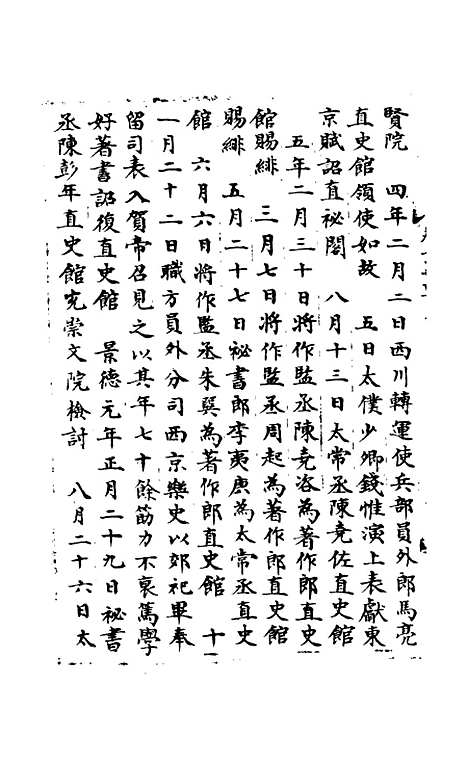 賢院　四年二月二日西川轉運使兵部員外郎馬亮
直史館領使如故　五日太僕少卿錢惟演上表獻東
京賦詔直祕閣　八月十三日太常丞陳堯佐直史館
五年二月三十日將作監丞陳堯咨為著作郎直史
館賜緋　三月七日將作監丞周起為著作郎直史館
賜緋　五月二十七日祕書郎李夷庚為太常丞直史
館　六月六日將作監丞朱巽為著作郎直史館　十
一月二十二日職方員外分司西京樂史以郊祀畢奉
留司表入賀帝召見之以其年七十餘筋力不衰篤學
好著書詔復直史館　景德元年正月二十九日祕書
丞陳彭年直史館充崇文院檢討　八月二十六日太